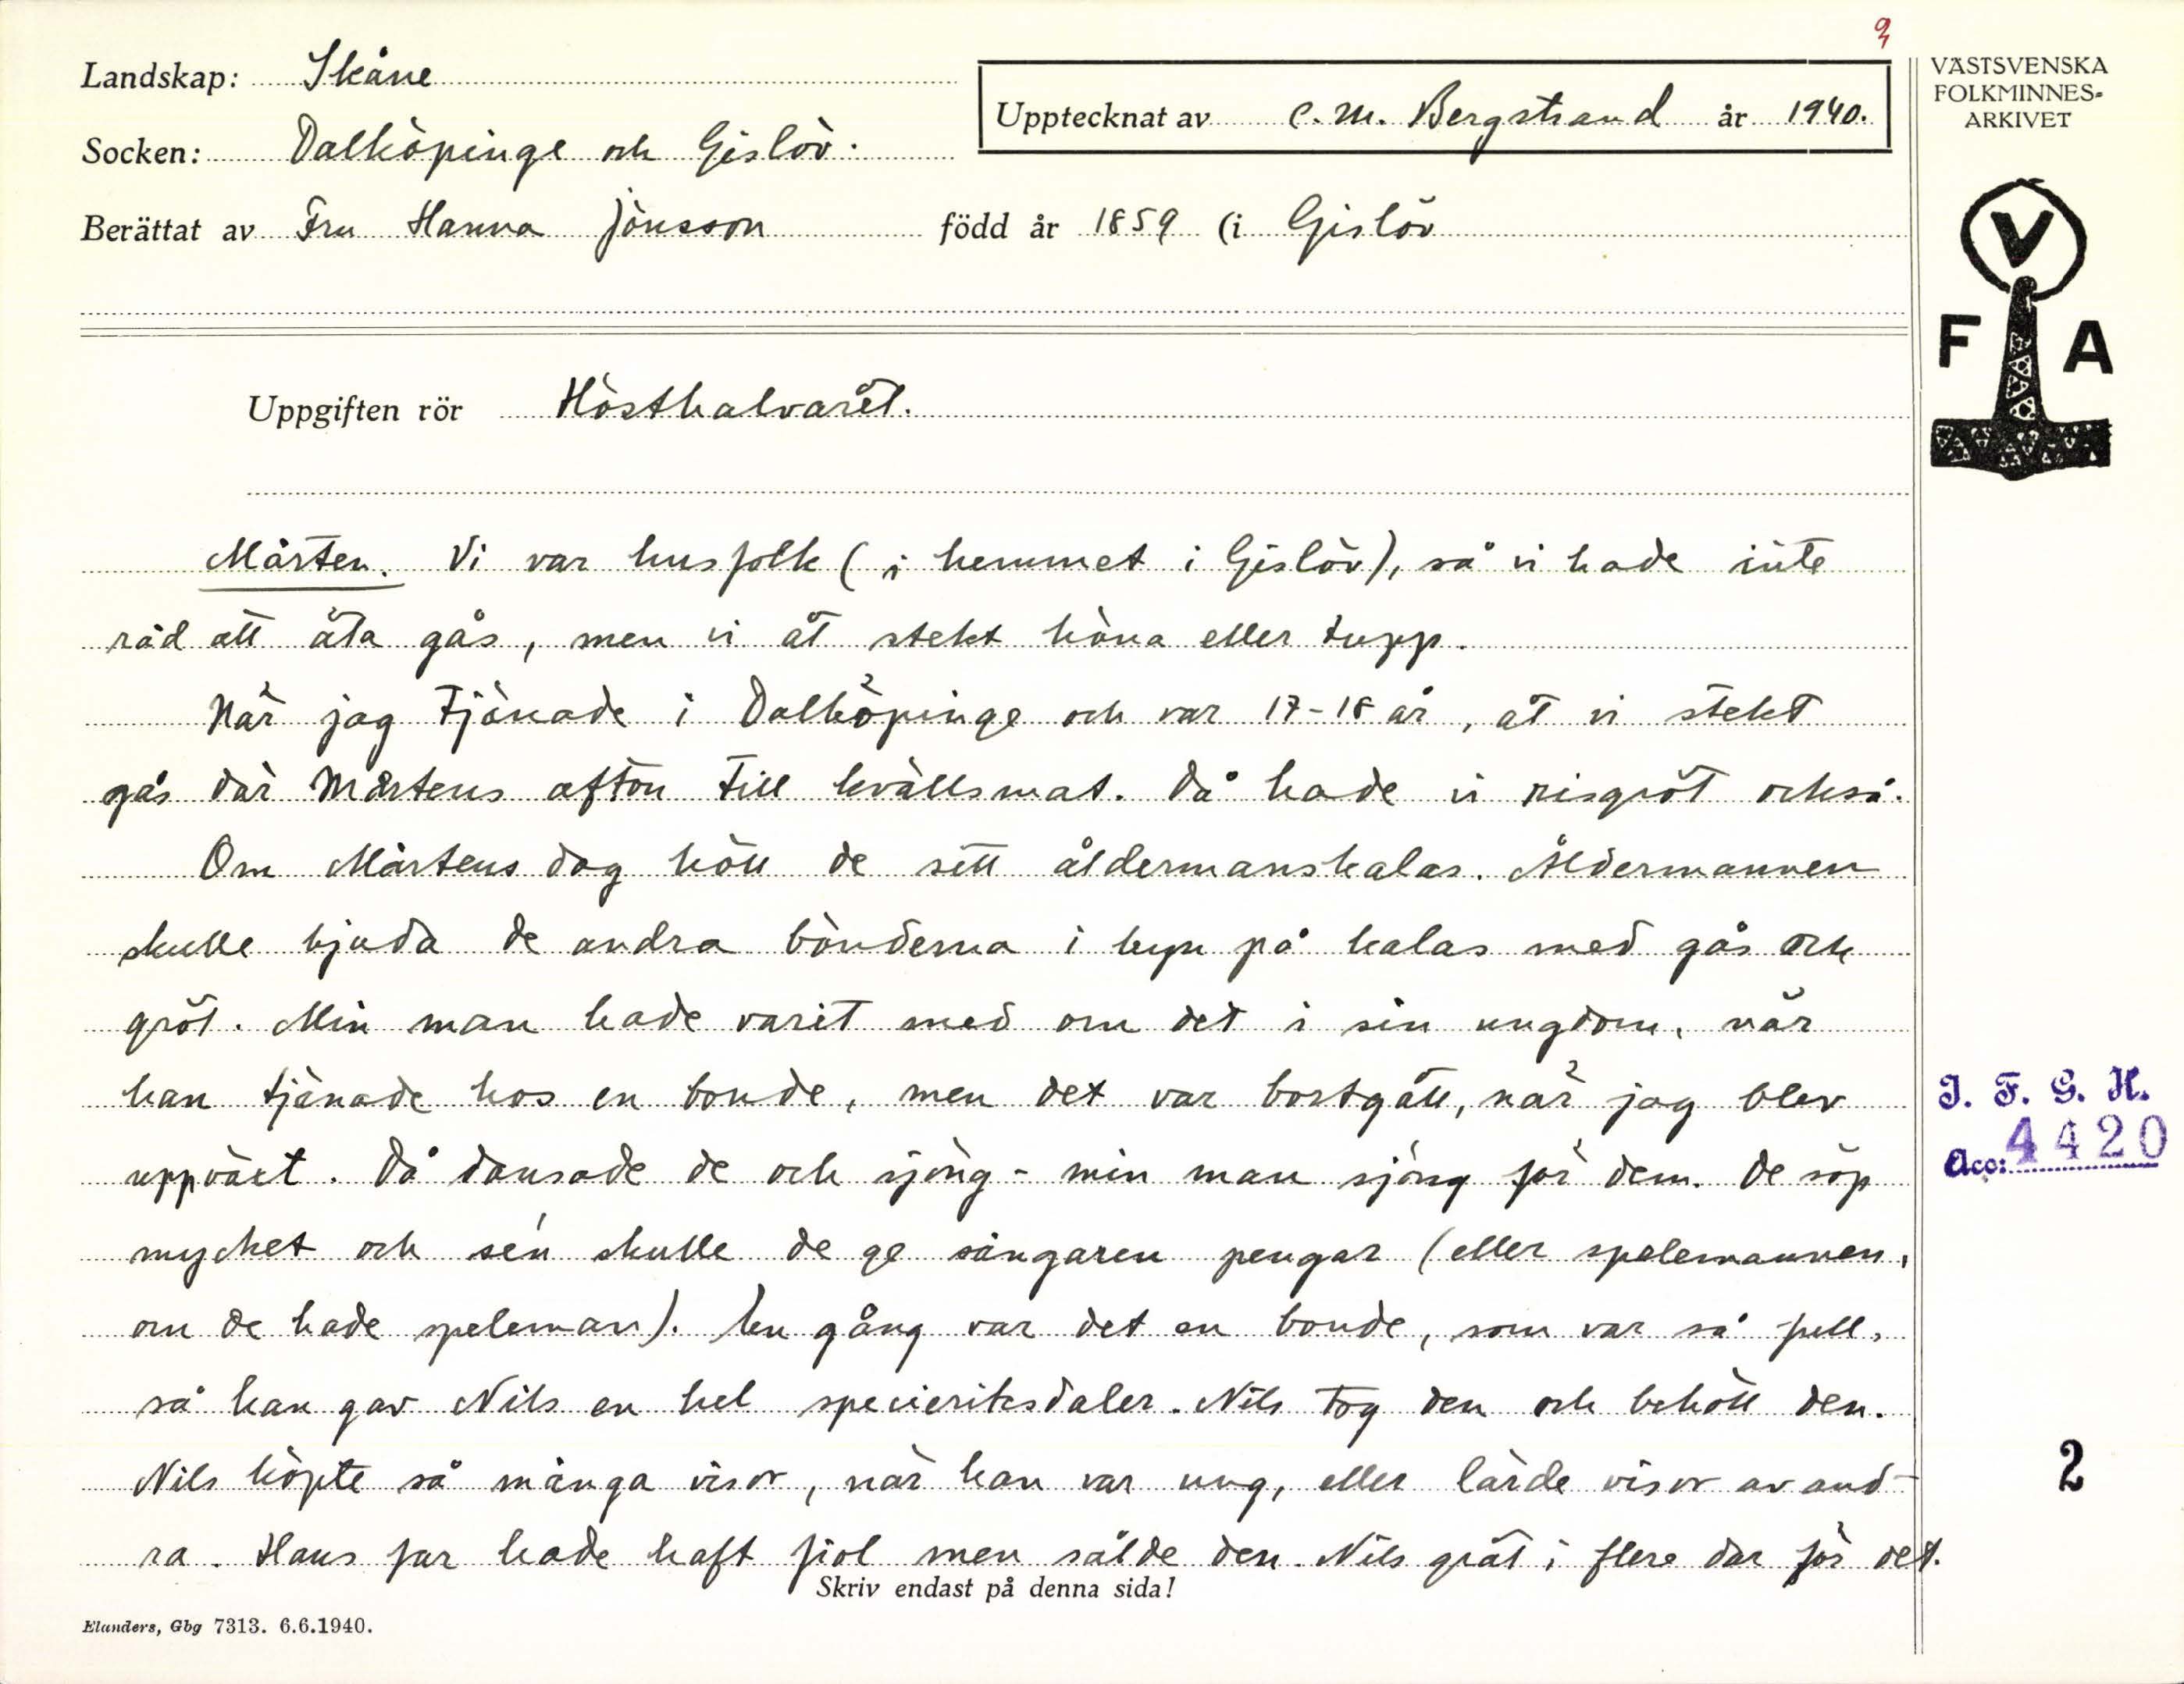 9
Landskap: Skåne
Upptecknat av C. M. Bergstrand år 1940.
VÄSTSVENSKA
FOLKMINNES-
ARKIVET
Socken: Dalköpinge och Gislöv.
Berättat av Fru Hanna Jönsson född år 1859 (i Gislöv
V
F A
Uppgiften rör Hösthalvaret.
Mårten. Vi var husfolk (i hemmet i Gislöv), så vi hade inte
råd att äta gås, men vi åt stekt höna eller tupp.
När jag tjänade i Dalköpinge och var 17-18 år, åt vi stekt
gås där Mårtens afton till kvällsmat. Då hade vi risgröt också.
Om Mårtens dag höll de sitt åldermanskalas. Åldermannen
skulle bjuda de andra bönderna i byn på kalas med gås och
gröt. Min man hade varit med om det i sin ungdom, när
han tjänade hos en bonde, men det var bortgått, när jag blev
uppväxt. Då dansade de och sjöng - min man sjöng för dem. De söp
mycket och sén skulle de ge sångaren pengar (eller spelemannen,
om de hade speleman). En gång var det en bonde, som var så full,
så han gav Nils en hel specieriksdaler. Nils tog den och behöll den.
Nils köpte så många visor, när han var ung, eller lärde visor av and-
ra. Hans far hade haft fiol men sålde den. Nils grät i flere dar för det.
Skriv endast på denna sida!
Elanders, Gbg 7313. 6.6.1940.
I. F. G. H.
Acc: 4420
2